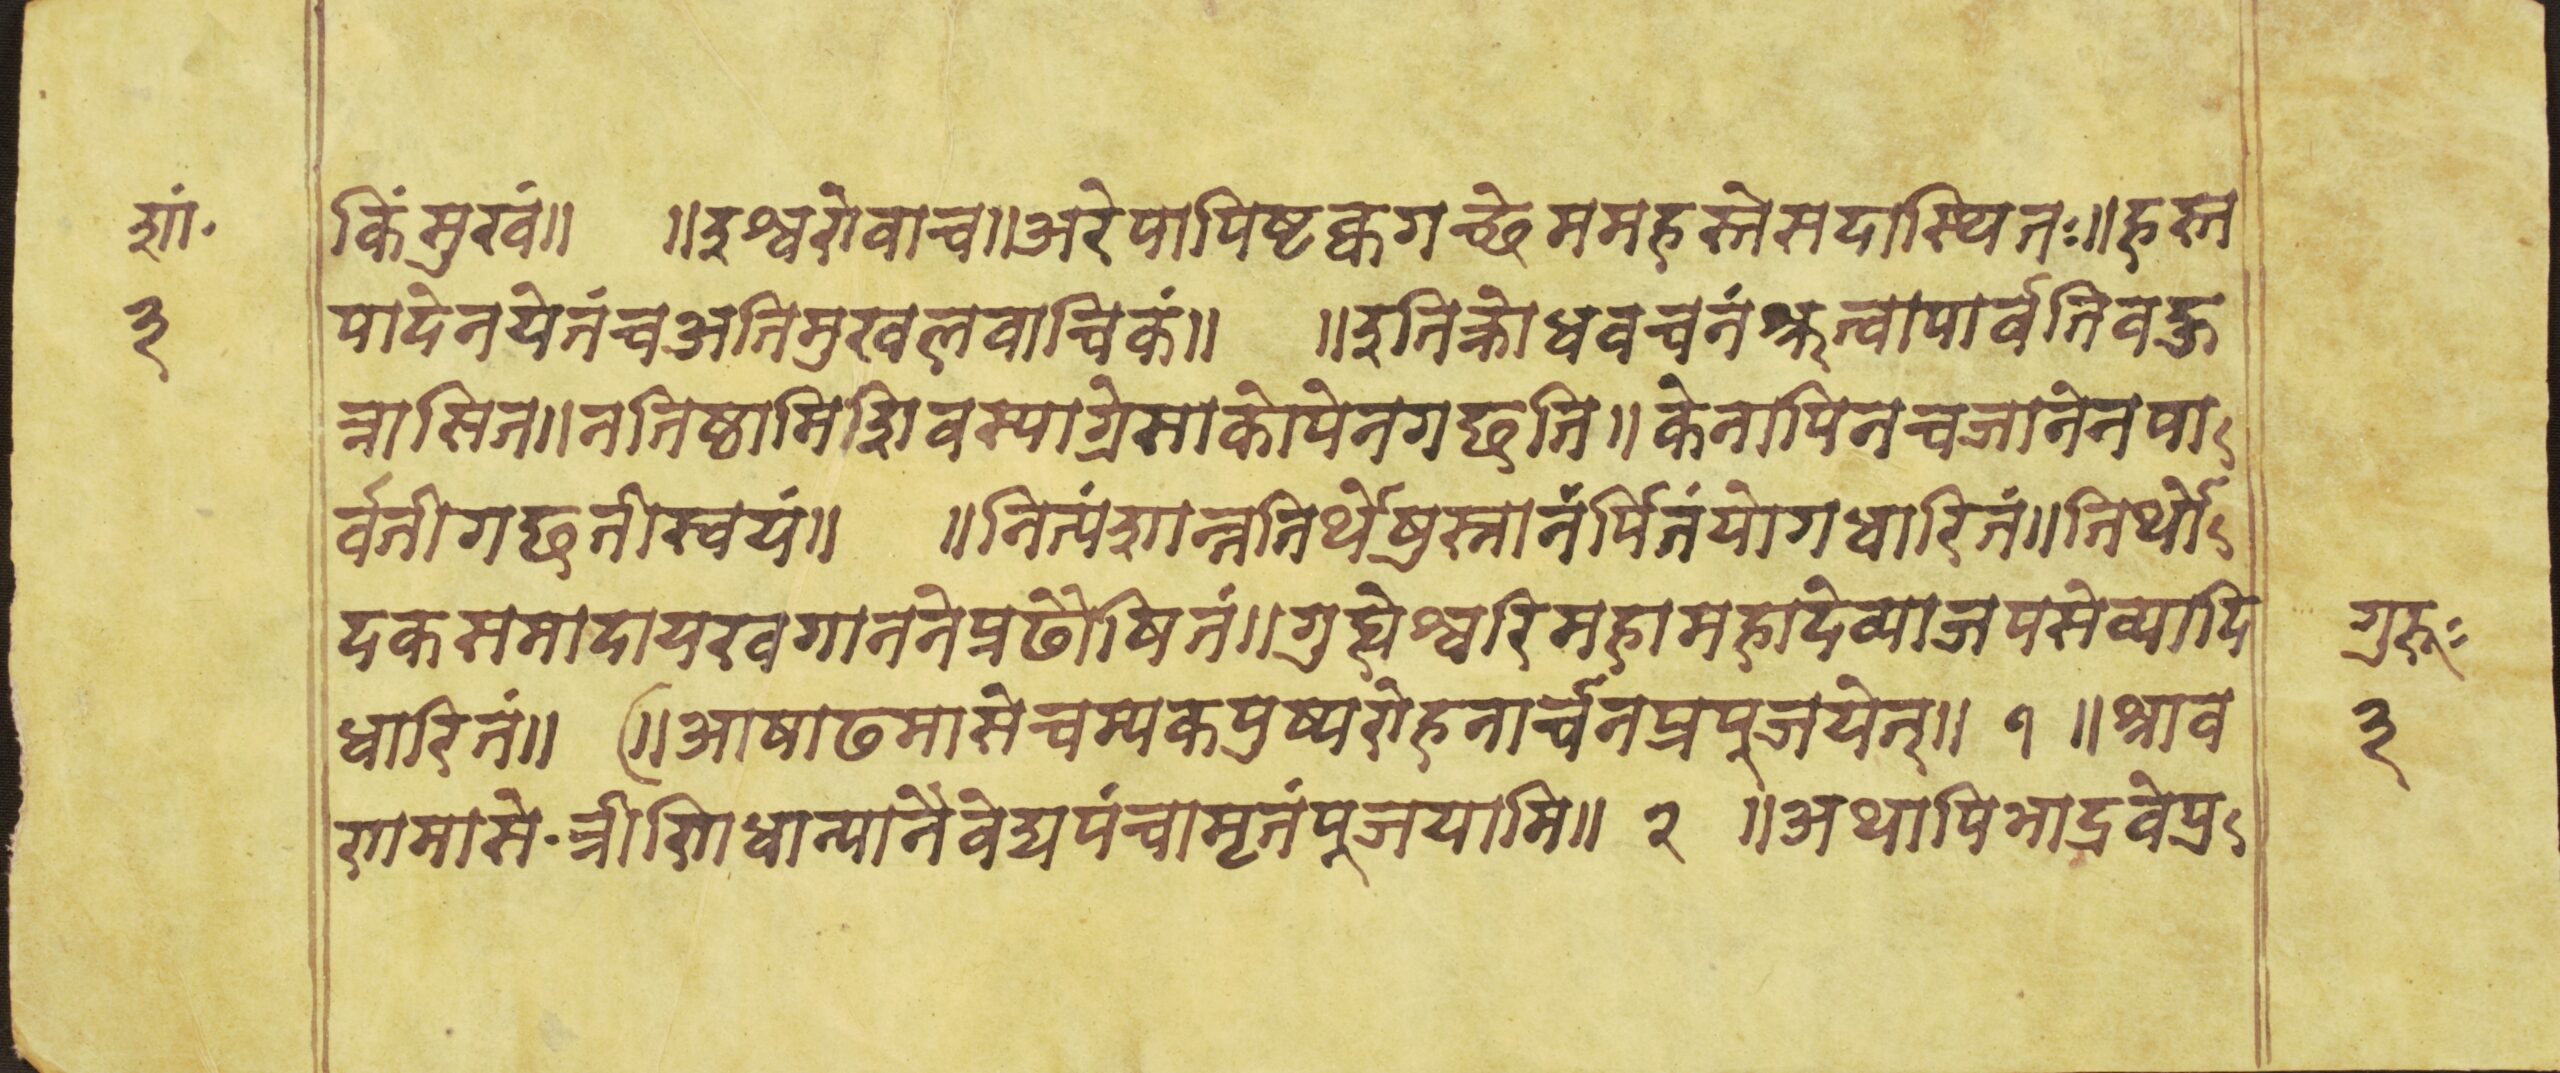 शां.
३
किंमुखं॥ ॥इश्वरोवाच॥अरेपापिष्टक्वगच्छेममहस्तेसदास्थितः॥हस्त
पादेनयेनंचअतिमुखलवाचिकं॥ ॥इतिक्रोधवचनंश्रुत्वापार्वतिवक्त्र
त्रासित॥नतिष्ठामिशिवस्याग्रेसाकोपेनगछति॥केनापिनचजानेनपा
र्वतीगछतीस्वयं॥ ॥नित्यंशान्ततिर्थेषुस्नानंर्पितंयोगधारितं॥तिर्थो
दकसमादायखगाननेप्रढौषितं॥गुह्येश्वरिमहामहादेव्याजपसेव्यादि
धारितं॥ (॥आषाढमासेचम्पकपुष्परोहनार्चनप्रपुजयेत्॥ १ ॥श्राव
णमासे.व्रीणिधान्यानैवेद्यपंचामृतंपुजयामि॥ २ ॥अथापिभाद्रवेप्र
गुरूः
३